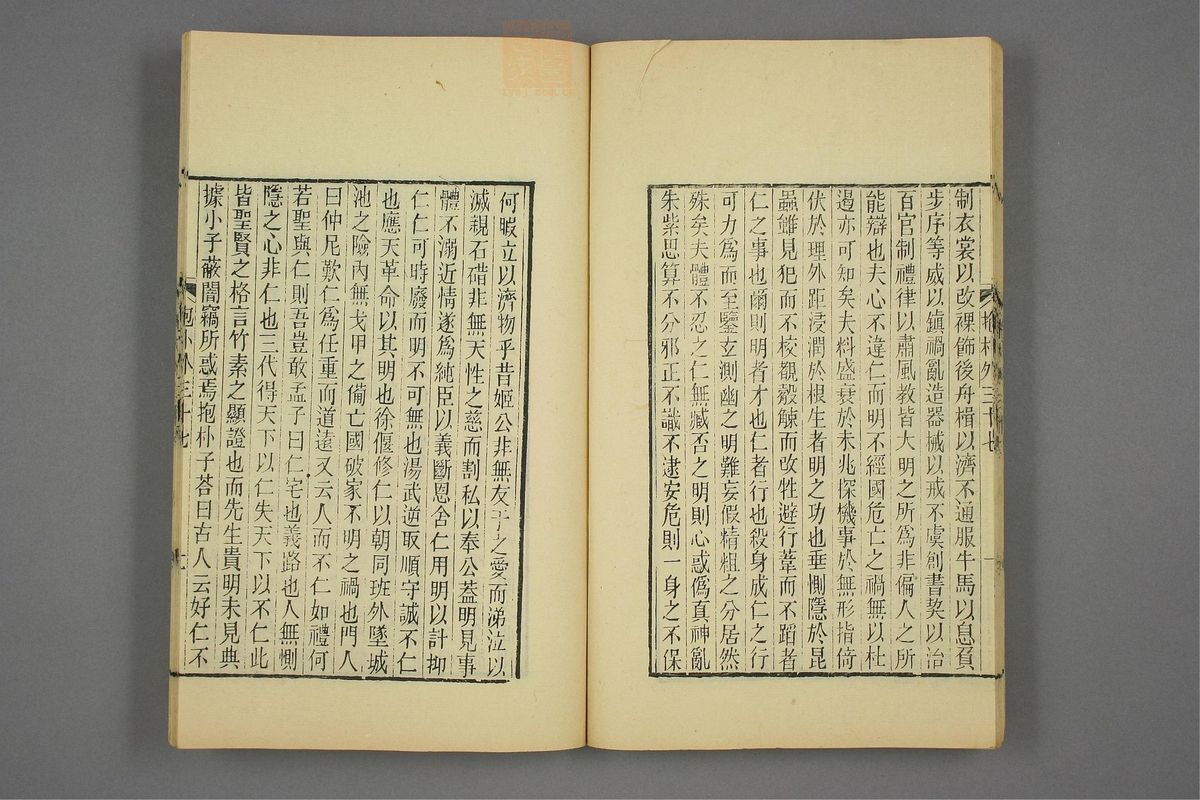 制衣裳以改裸飾後舟楫以濟不通服牛馬以息負
步序等威以鎮禍亂造器械以戒不虞創書契以治
百官制禮律以肅風教皆大明之所爲非偏人之所
能辯也夫心不違仁而明不經國危亡之禍無以杜
遏亦可知矣夫料盛衰於未兆探機事於無形指倚
伏於理外距浸潤於根生者明之功也垂惻隱於昆
蟲雖見犯而不校覩觳觫而改牲避行葦而不蹈者
仁之事也爾則明者才也仁者行也殺身成仁之行
可力爲而至鑒玄測幽之明難妄假精粗之分居然
殊矣夫體不忍之仁無臧否之明則心惑僞真神亂
朱紫思算不分邪正不識不逮安危則一身之不保
抱朴外三十七
何暇立以濟物乎昔姬公非無友于之愛而涕泣以
滅親石碏非無天性之慈而割私以奉公蓋明見事
體不溺近情遂爲純臣以義斷恩舍仁用明以計抑
仁仁可時廢而明不可無也湯武逆取順守誠不仁
也應天革命以其明也徐偃修仁以朝同班外墜城
池之險內無戈甲之備亡國破家不明之禍也門人
曰仲尼歎仁爲任重而道遠又云人而不仁如禮何
若聖與仁則吾豈敢孟子曰仁宅也義路也人無惻
隱之心非仁也三代得天下以仁失天下以不仁此
皆聖賢之格言竹素之顯證也而先生貴明未見典
據小子蔽闇竊所惑焉抱朴子荅曰古人云好仁不
抱朴外三十七